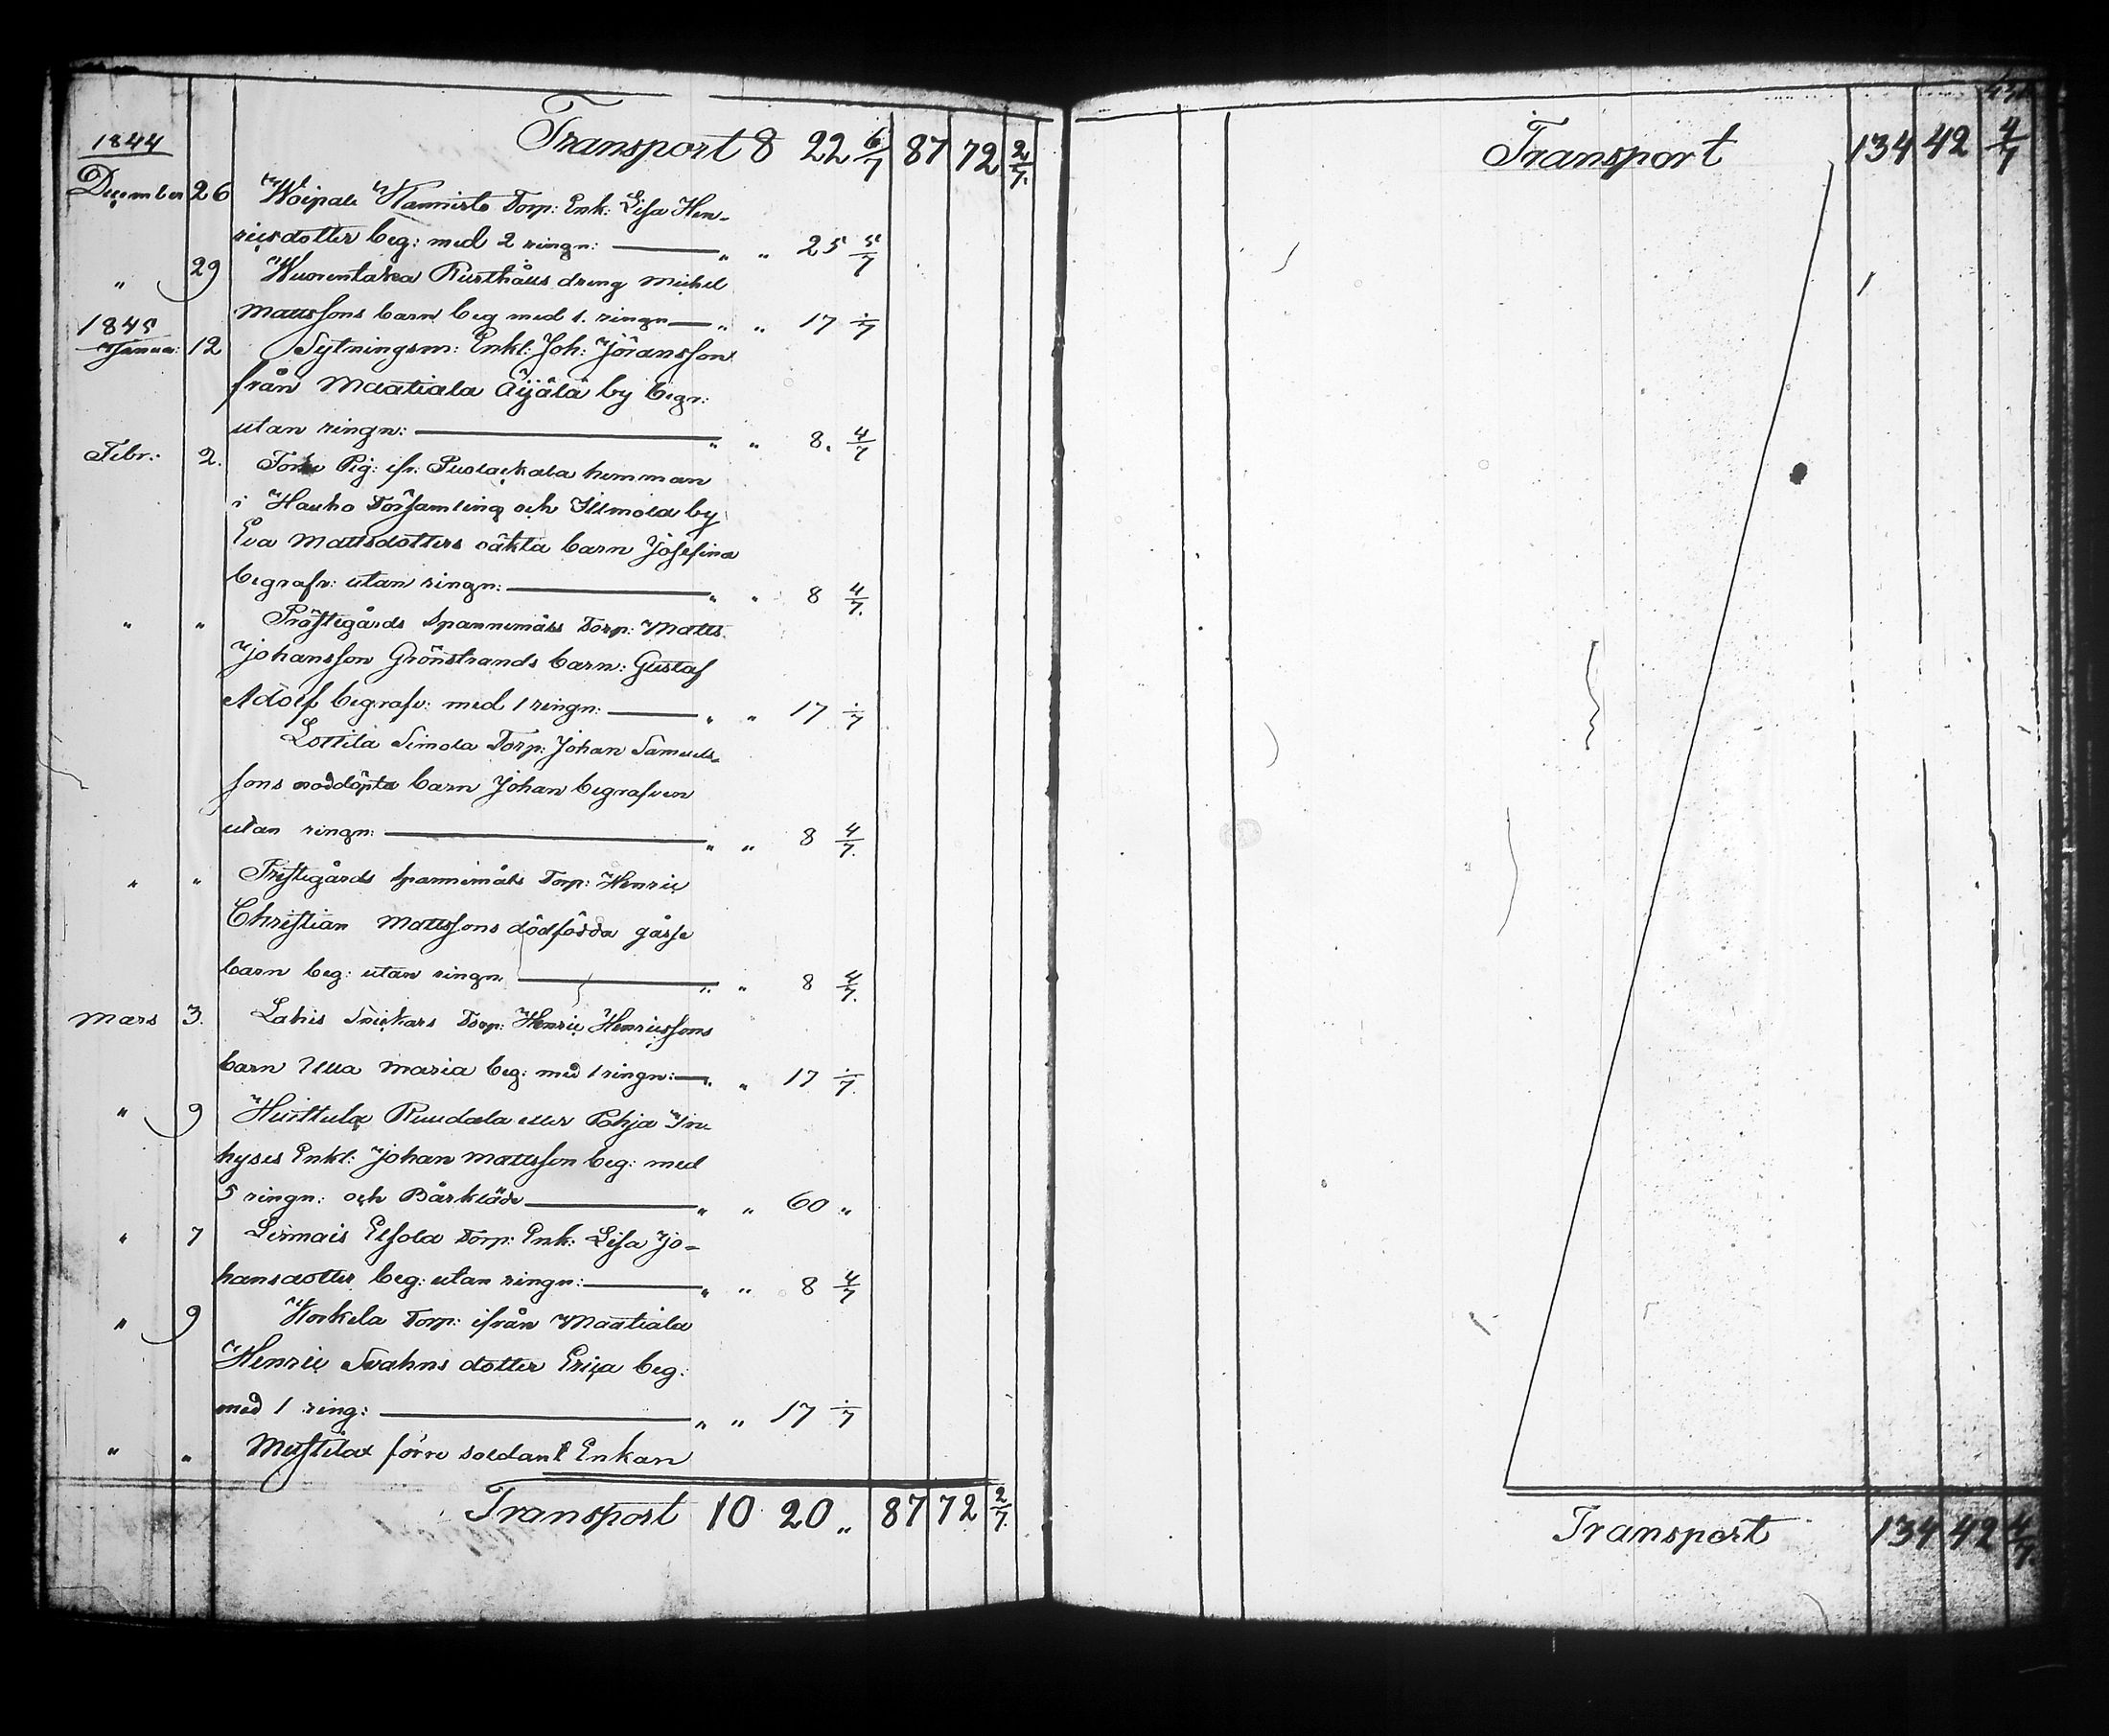 Transport 8 22 6/7 87 72 2/7.
1844
December 26 Woipala Hannisto Torp: Enk: Lisa Hen-
ricsdotter beg: med 2 ringn: „ „ 25 5/7
„ 29 Wuorentaka Rusthålls dreng Michel
Mattssons barn beg med 1. ringn „ „ 17 1/7
1845
Januar: 12 Sytningsm: Enkl: Joh: Jöransson
från Maatiala Äijälä by begr:
utan ringn: „ „ 8. 4/7
Febr: 2. Pig: ifr: hemman
i Hauho Församling och by
Eva Mattsdotters oäkta barn Josefina
begrafv: utan ringn: „ „ 8 4/7.
„ „ Präftegårds Spannemåls Torp: Matts
Johansson Grönstrands barn: Gustaf
Adolf begrafv: med 1 ringn: „ „ 17 1/7
Lottila Simola Torp: Johan Samuels-
sons noddöpta barn Johan begrafven
utan ringn: „ „ 8 4/7.
„ „ Preftegårds Spannemåls Torp: Henric
Christian Mattssons dödfödda gåsse
barn beg: utan ringn: „ „ 8 4/7.
Mars 3. Lahis Snickars Torp: Henric Henricssons
barn Ulla Maria beg: med 1 ringn: „ „ 17 1/7.
„ 9 Huittula eller Pohja In-
hyses Enkl: Johan Mattsson beg: med
5 ringn: och Bårkläde „ „ 60 „
„ 7 Torp: Enk: Lisa Jo-
hansdotter beg: utan ringn: „ „ 8 4/7
„ 9 Korkela Torp: ifrån Maatiala
Henric Svahns dotter Erica beg:
med 1 ring: „ „ 17 1/7
„ „ förre soldant Enkan
Transport 10 20 „ 87 72 2/7.
Transport 134 42 4/7
Transport 134 42 4/7.